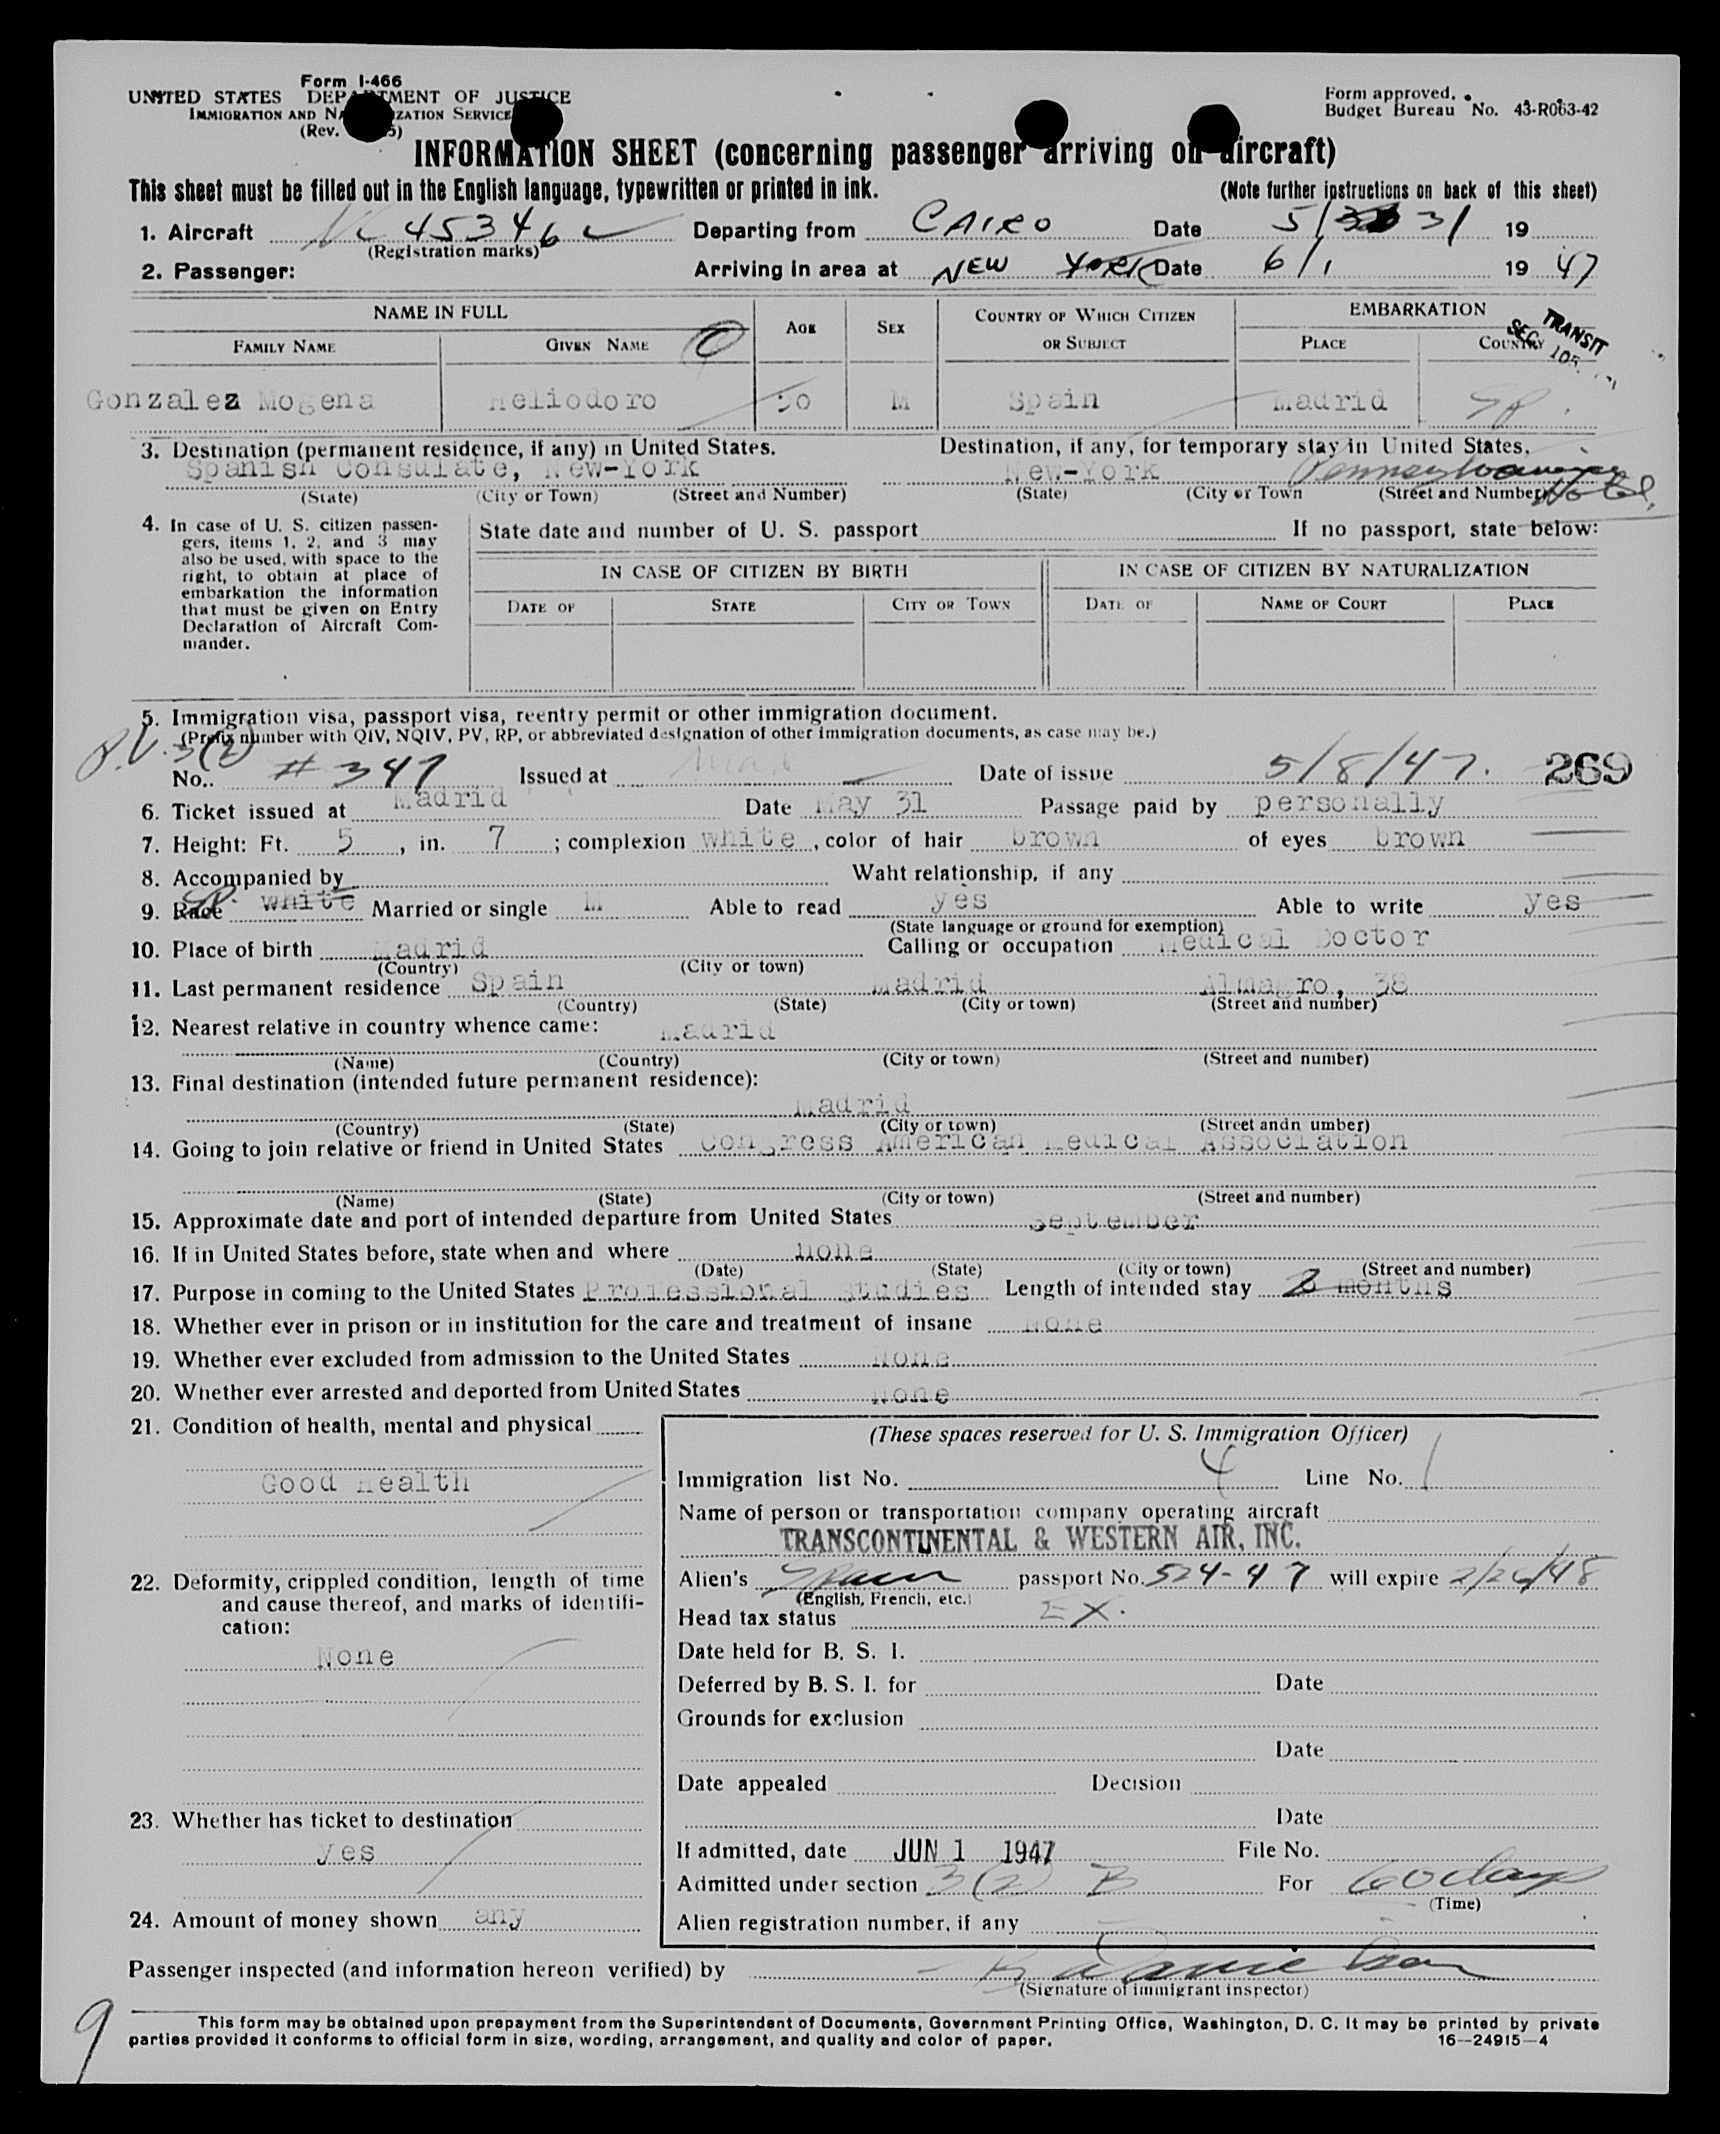 Form I-466
UNITED STATES DEPARTMENT OF JUSTICE
IMMIGRATION AND NATURALIZATION SERVICE
(Rev.
Form approved.
Budget Bureau No. 43-R063-42
INFORMATION SHEET (concerning passenger arriving on aircraft)
This sheet must be filled out in the English language, typewritten or printed in ink. (Note further instructions on back of this sheet)
1. Aircraft NC 45346 Departing from CAIRO Date 5/31 19
(Registration marks)
2. Passenger: Arriving in area at NEW YORK Date 6/1 19 47
NAME IN FULL AGE SEX COUNTRY OF WHICH CITIZEN OR SUBJECT EMBARKATION
FAMILY NAME GIVEN NAME PLACE COUNTRY
TRANSIT
SEC. 105
Gonzalez Mogena Heliodoro 50 M Spain Madrid SP.
3. Destination (permanent residence, if any) in United States. Destination, if any, for temporary stay in United States,
Spanish Consulate, New-York New-York Pennsylvania Hotel,
(State) (City or Town) (Street and Number) (State) (City or Town (Street and Number)
4. In case of U. S. citizen passen-
gers, items 1, 2, and 3 may
also be used, with space to the
right, to obtain at place of
embarkation the information
that must be given on Entry
Declaration of Aircraft Com-
mander.
State date and number of U. S. passport If no passport, state below:
IN CASE OF CITIZEN BY BIRTH IN CASE OF CITIZEN BY NATURALIZATION
DATE OF STATE CITY OR TOWN DATE OF NAME OF COURT PLACE
5. Immigration visa, passport visa, reentry permit or other immigration document.
(Prefix number with QIV, NQIV, PV, RP, or abbreviated designation of other immigration documents, as case may be.)
P.V. 3(2)
No.. # 347 Issued at Date of issue 5/8/47. 269
6. Ticket issued at Madrid Date May 31 Passage paid by personally
7. Height: Ft. 5, in. 7; complexion white, color of hair brown of eyes brown
8. Accompanied by Waht relationship, if any
9. Race SP. white Married or single M Able to read yes Able to write yes
(State language or ground for exemption)
10. Place of birth Madrid Calling or occupation Medical Doctor
(Country) (City or town)
11. Last permanent residence Spain Madrid Almagro, 38
(Country) (State) (City or town) (Street and number)
12. Nearest relative in country whence came: Madrid
(Name) (Country) (City or town) (Street and number)
13. Final destination (intended future permanent residence):
Madrid
(Country) (State) (City or town) (Street andn umber)
14. Going to join relative or friend in United States Congress American Medical Association
(Name) (State) (City or town) (Street and number)
15. Approximate date and port of intended departure from United States September
16. If in United States before, state when and where None
(Date) (State) (City or town) (Street and number)
17. Purpose in coming to the United States Professional studies Length of intended stay 2 months
18. Whether ever in prison or in institution for the care and treatment of insane None
19. Whether ever excluded from admission to the United States None
20. Whether ever arrested and deported from United States None
21. Condition of health, mental and physical
Good Health
22. Deformity, crippled condition, length of time
and cause thereof, and marks of identifi-
cation:
None
23. Whether has ticket to destination
yes
24. Amount of money shown any
(These spaces reserved for U. S. Immigration Officer)
Immigration list No. 4 Line No. 1
Name of person or transportation company operating aircraft
TRANSCONTINENTAL & WESTERN AIR, INC.
Alien's Spain passport No. 524-47 will expire 2/26/48
(English, French, etc.)
Head tax status EX.
Date held for B. S. I.
Deferred by B. S. I. for Date
Grounds for exclusion
Date
Date appealed Decision
Date
If admitted, date JUN 1 1947 File No.
Admitted under section 3(2) B For 60 days
(Time)
Alien registration number, if any
Passenger inspected (and information hereon verified) by
(Signature of immigrant inspector)
9
This form may be obtained upon prepayment from the Superintendent of Documents, Government Printing Office, Washington, D. C. It may be printed by private
parties provided it conforms to official form in size, wording, arrangement, and quality and color of paper. 16—24915-4